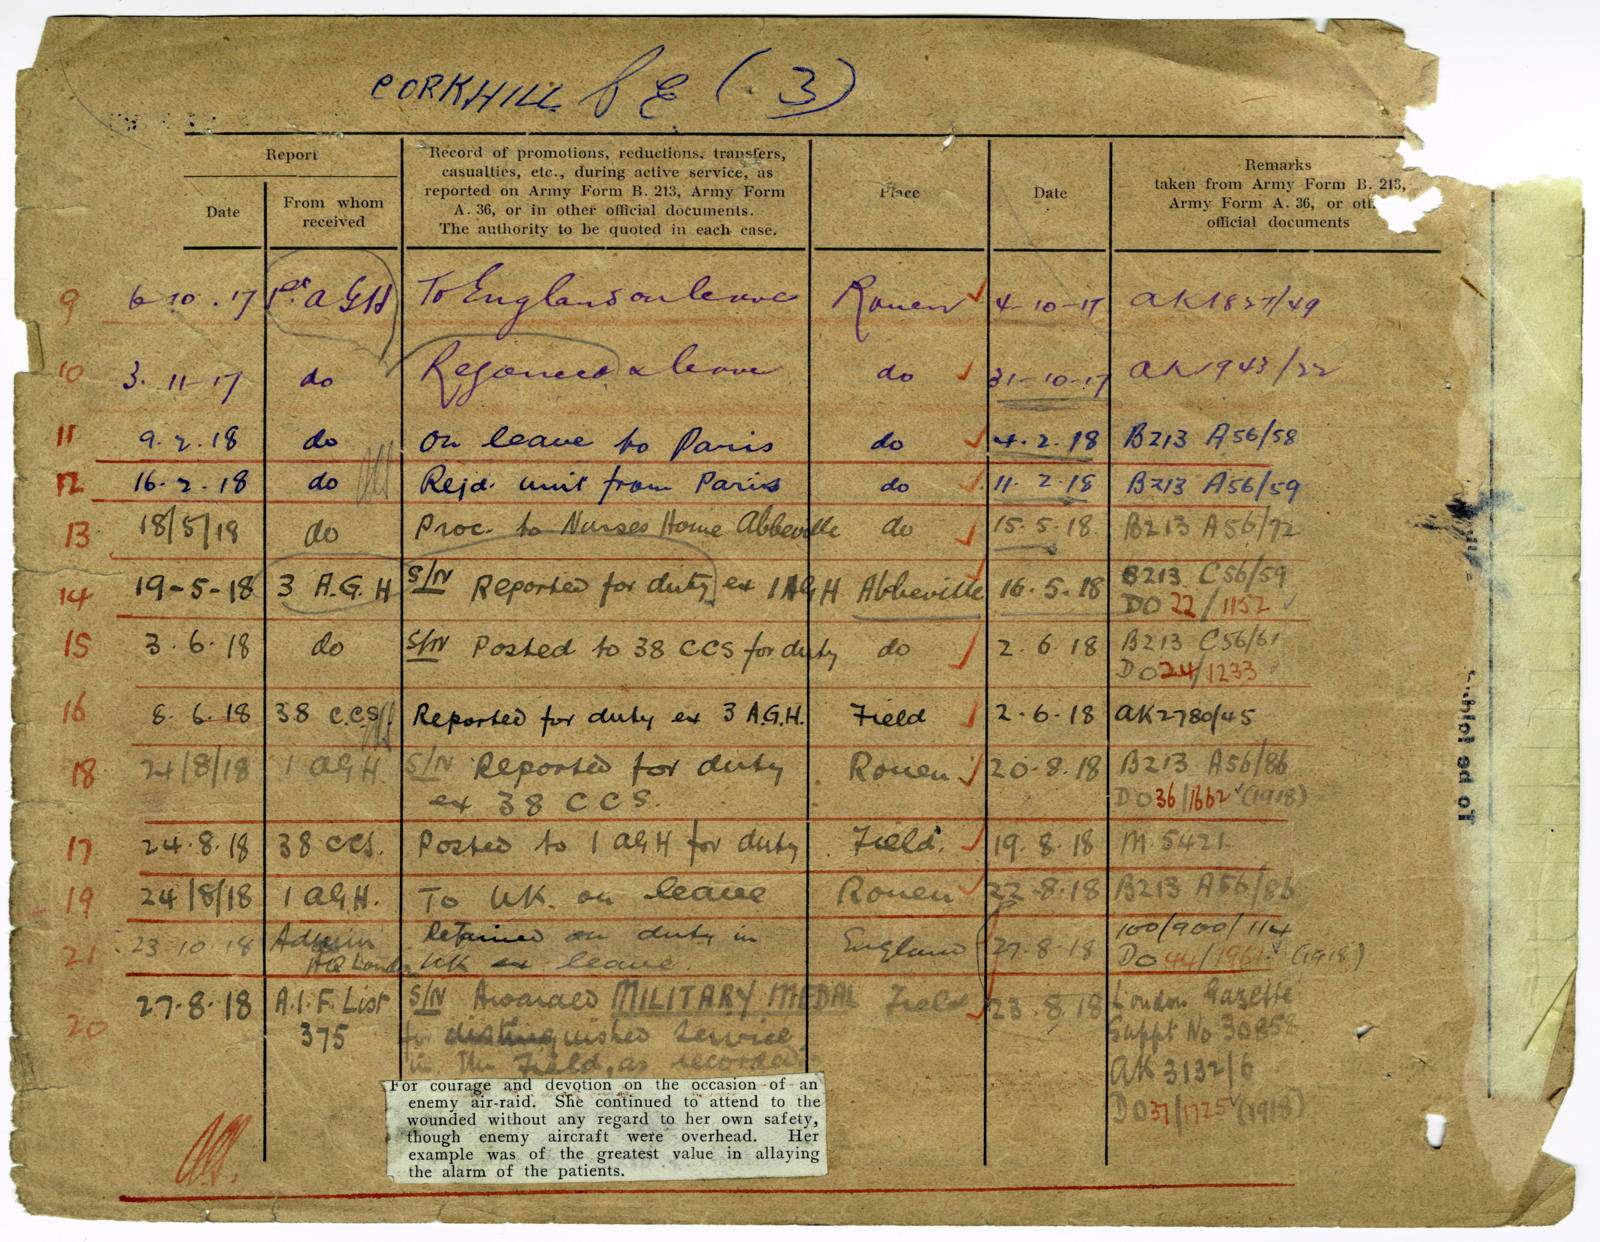 CORKHILL P E (3)
Report
Date
From whom
received
Record of promotions, reductions, transfers,
casualties, etc., during active service, as
reported on Army Form B. 213, Army Form
A. 36, or in other official documents.
The authority to be quoted in each case.
Place
Date
Remarks
taken from Army Form B. 213,
Army Form A. 36, or
official documents
9 6-10-17 1st AGH To England on leave Rouen 4-10-17 AK1827/49
10 3.11-17 do Rejoined leave do 31-10-17 AK1943/22
11 9.2.18 do on leave to Paris do 4.2.18 B213 A56/58
12 16.2.18 do Rejd. unit from Paris do 11.2.18 B213 A56/59
13 18/5/18 do Proc. to Nurses Home Abbeville do 15.5.18 B213 A56/72
14 19-5-18 3 A.G.H S/N Reported for duty ex 1 AGH Abbeville 16.5.18 B213 C56/59
DO 22/1152
15 3.6.18 do S/N Posted to 38 CCS for duty do 2.6.18 B213 C56/61
DO 24/1233
16 8.6.18 38 C.CS Reported for duty ex 3 A.G.H. Field 2.6.18 AK2780/45
18 24/8/18 1 AGH. S/N Reported for duty Rouen 20.8.18 B213 A56/86
ex 38 CCS. DO 36/1662 (1918)
17 24.8.18 38 CCS. Posted to 1 AGH for duty Field. 19.8.18 M.5421
19 24/8/18 1 AGH. To UK. on leave Rouen 22.8.18 B213 A56/86
21 23.10.18 Admin Retained on duty in England 27.8.18 100/900/114
HQ London UK ex leave. DO 44/1961 (1918)
20 27.8.18 A.I.F. List S/N Awarded MILITARY MEDAL Field 23.8.18 London Gazette
375 for distinguished service Suppt No 30858
in the Field, as recorded AK 3132/6
DO 37/1725 (1918)
For courage and devotion on the occasion of an
enemy air-raid. She continued to attend to the
wounded without any regard to her own safety,
though enemy aircraft were overhead. Her
example was of the greatest value in allaying
the alarm of the patients.
To be